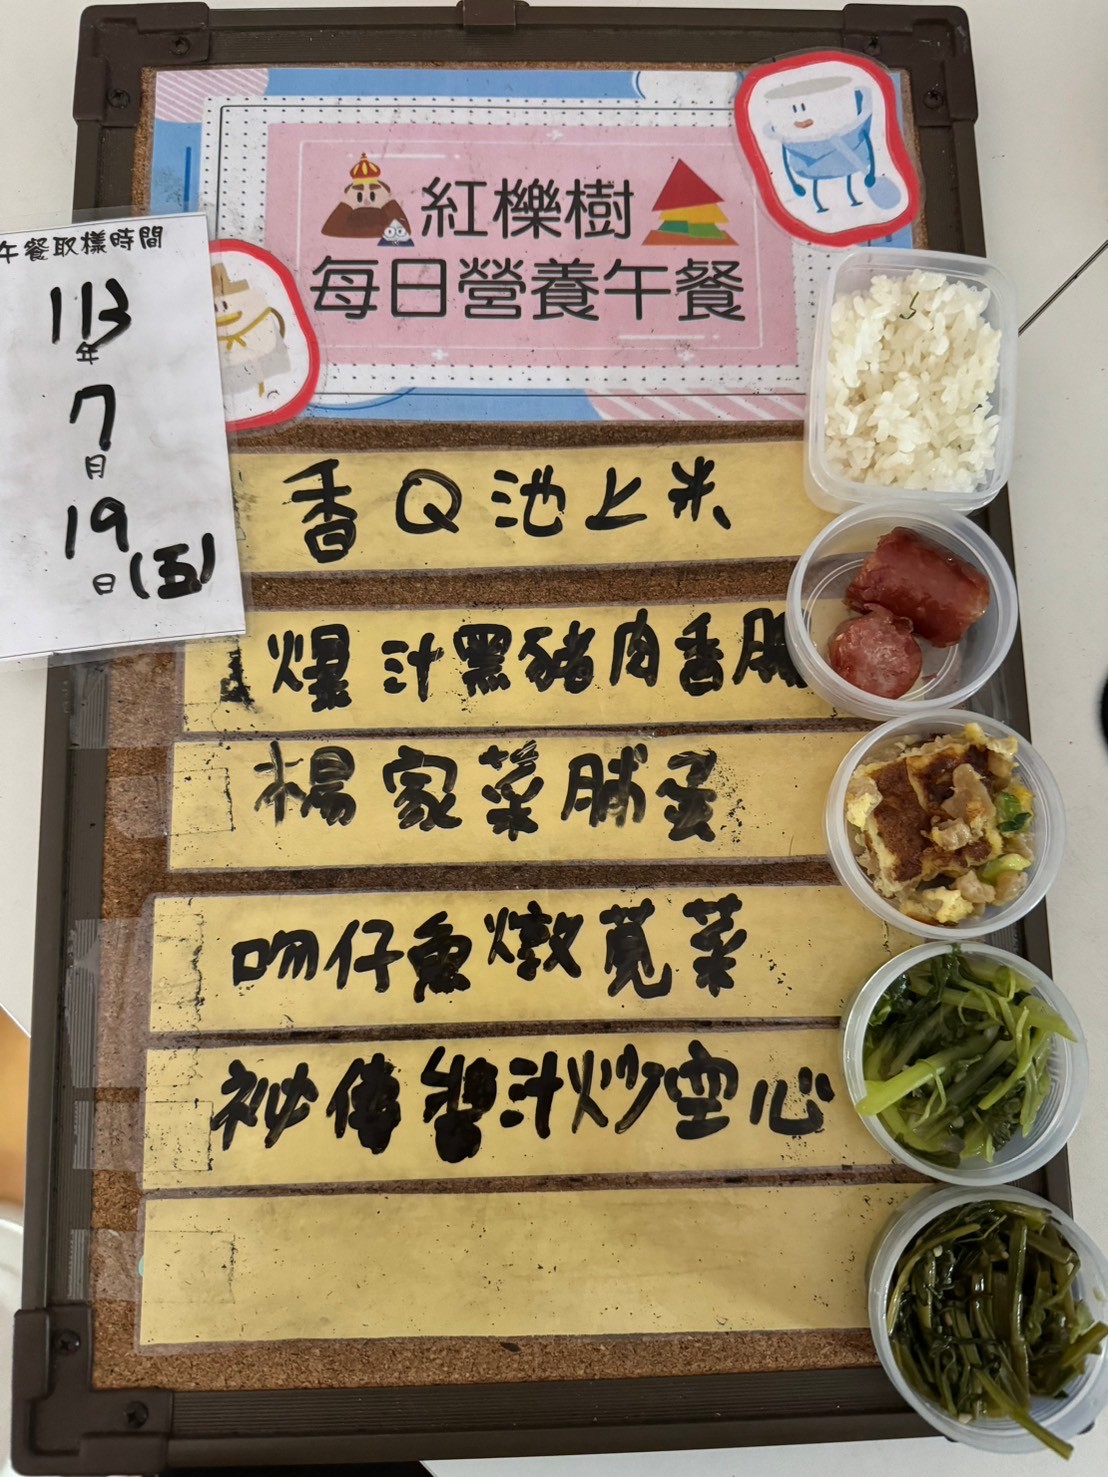 紅櫟樹
每日營養午餐
午餐取樣時間
113
年
7
月
19
日(五)
香Q池上米
爆汁黑豬肉香腸
楊家菜脯蛋
吻仔魚燉莧菜
祕傳醬汁炒空心